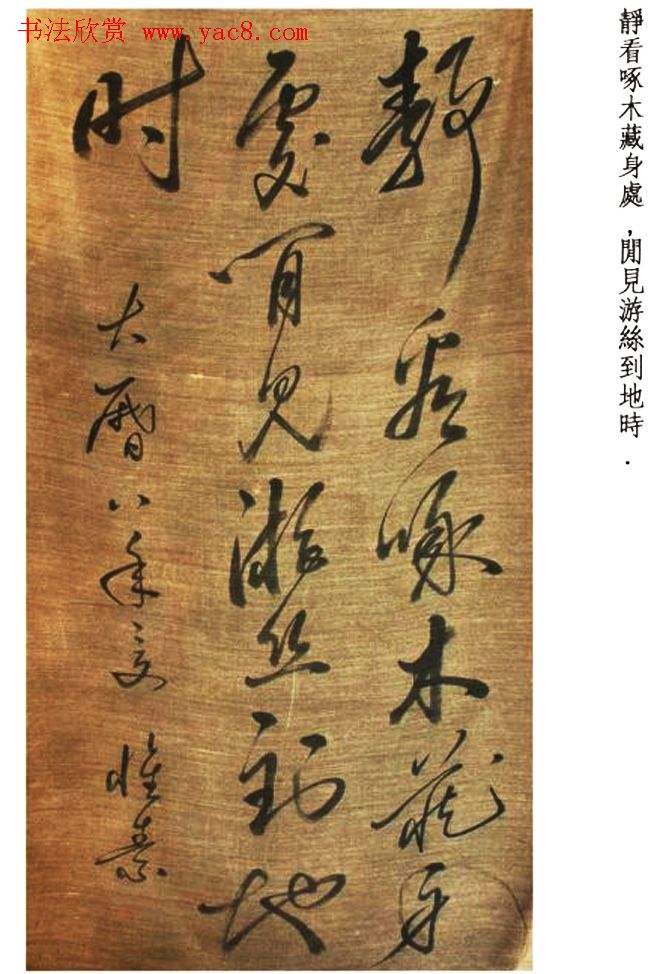 书法欣赏 www.yac8.com
靜看啄木藏身處，閒見游絲到地時.
靜看啄木藏身
處閒見游丝到地
时
大曆八年 懷素